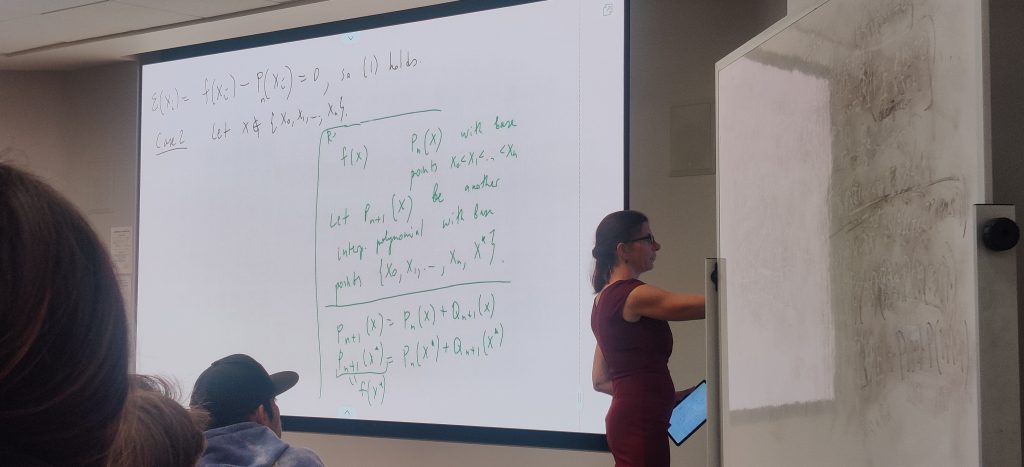 ε(xᵢ) = f(xᵢ) − Pₙ(xᵢ) = 0, so (1) holds.
Case 2 Let x ∉ {x₀, x₁, .., xₙ}.
f(x) Pₙ(x) with base
points x₀<x₁<..<xₙ
Let Pₙ₊₁(x) be another
interp. polynomial with base
points {x₀, x₁, .., xₙ, x*}.
Pₙ₊₁(x) = Pₙ(x) + Qₙ₊₁(x)
Pₙ₊₁(x*) = Pₙ(x*) + Qₙ₊₁(x*)
f(x*)